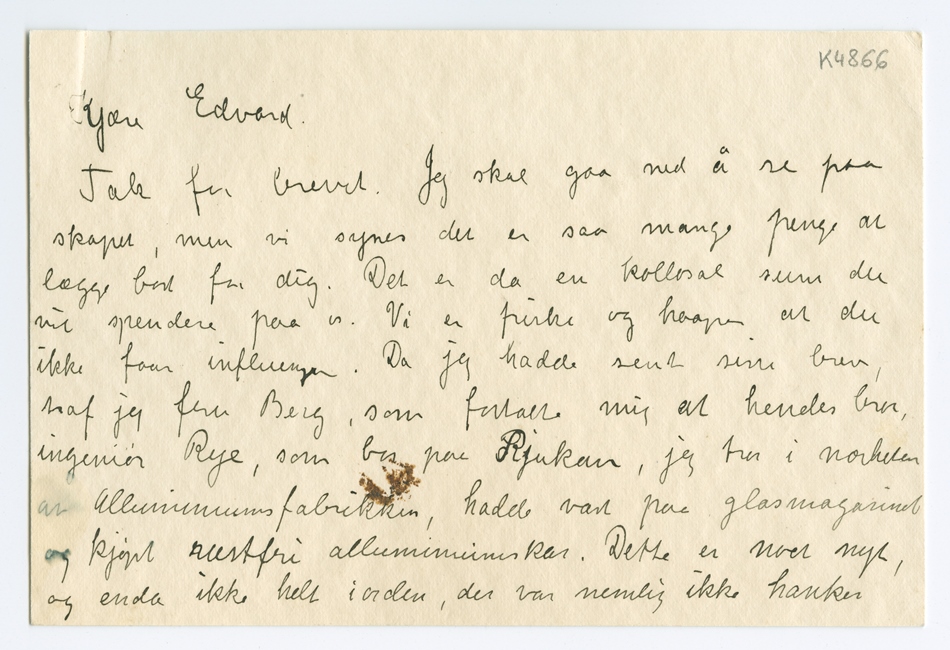 K4866
Kjære Edvard.
Takk for brevet. Jeg skal gaa ned å se paa
skapet, men vi synes det er saa mange penge at
lægge bort for dig. Det er da en kollosal sum du
vil spendere paa os. Vi er friske og haaper at du
ikke faar influenza. Da jeg hadde sent sine brev,
traf jeg fru Berg, som fortalte mig at hendes bror,
ingeniør Rye, som bor paa Rjukan, jeg tror i nærheten
av Alluminiumsfabrikken, hadde vært paa glasmagasinet
og kjøpt rustfri alluminiumskar. Dette er noet nyt,
og enda ikke helt iorden, der var nemlig ikke hanker